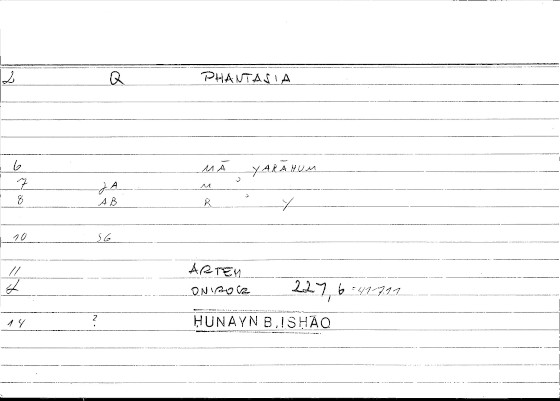 2 Q PHANTASIA
6 MĀ YARĀHUM
7 JA M
8 AB R ' Y
10 SG
11 ARTEM
ONIROCR 227, 6
14 ? HUNAYN B. ISHĀQ